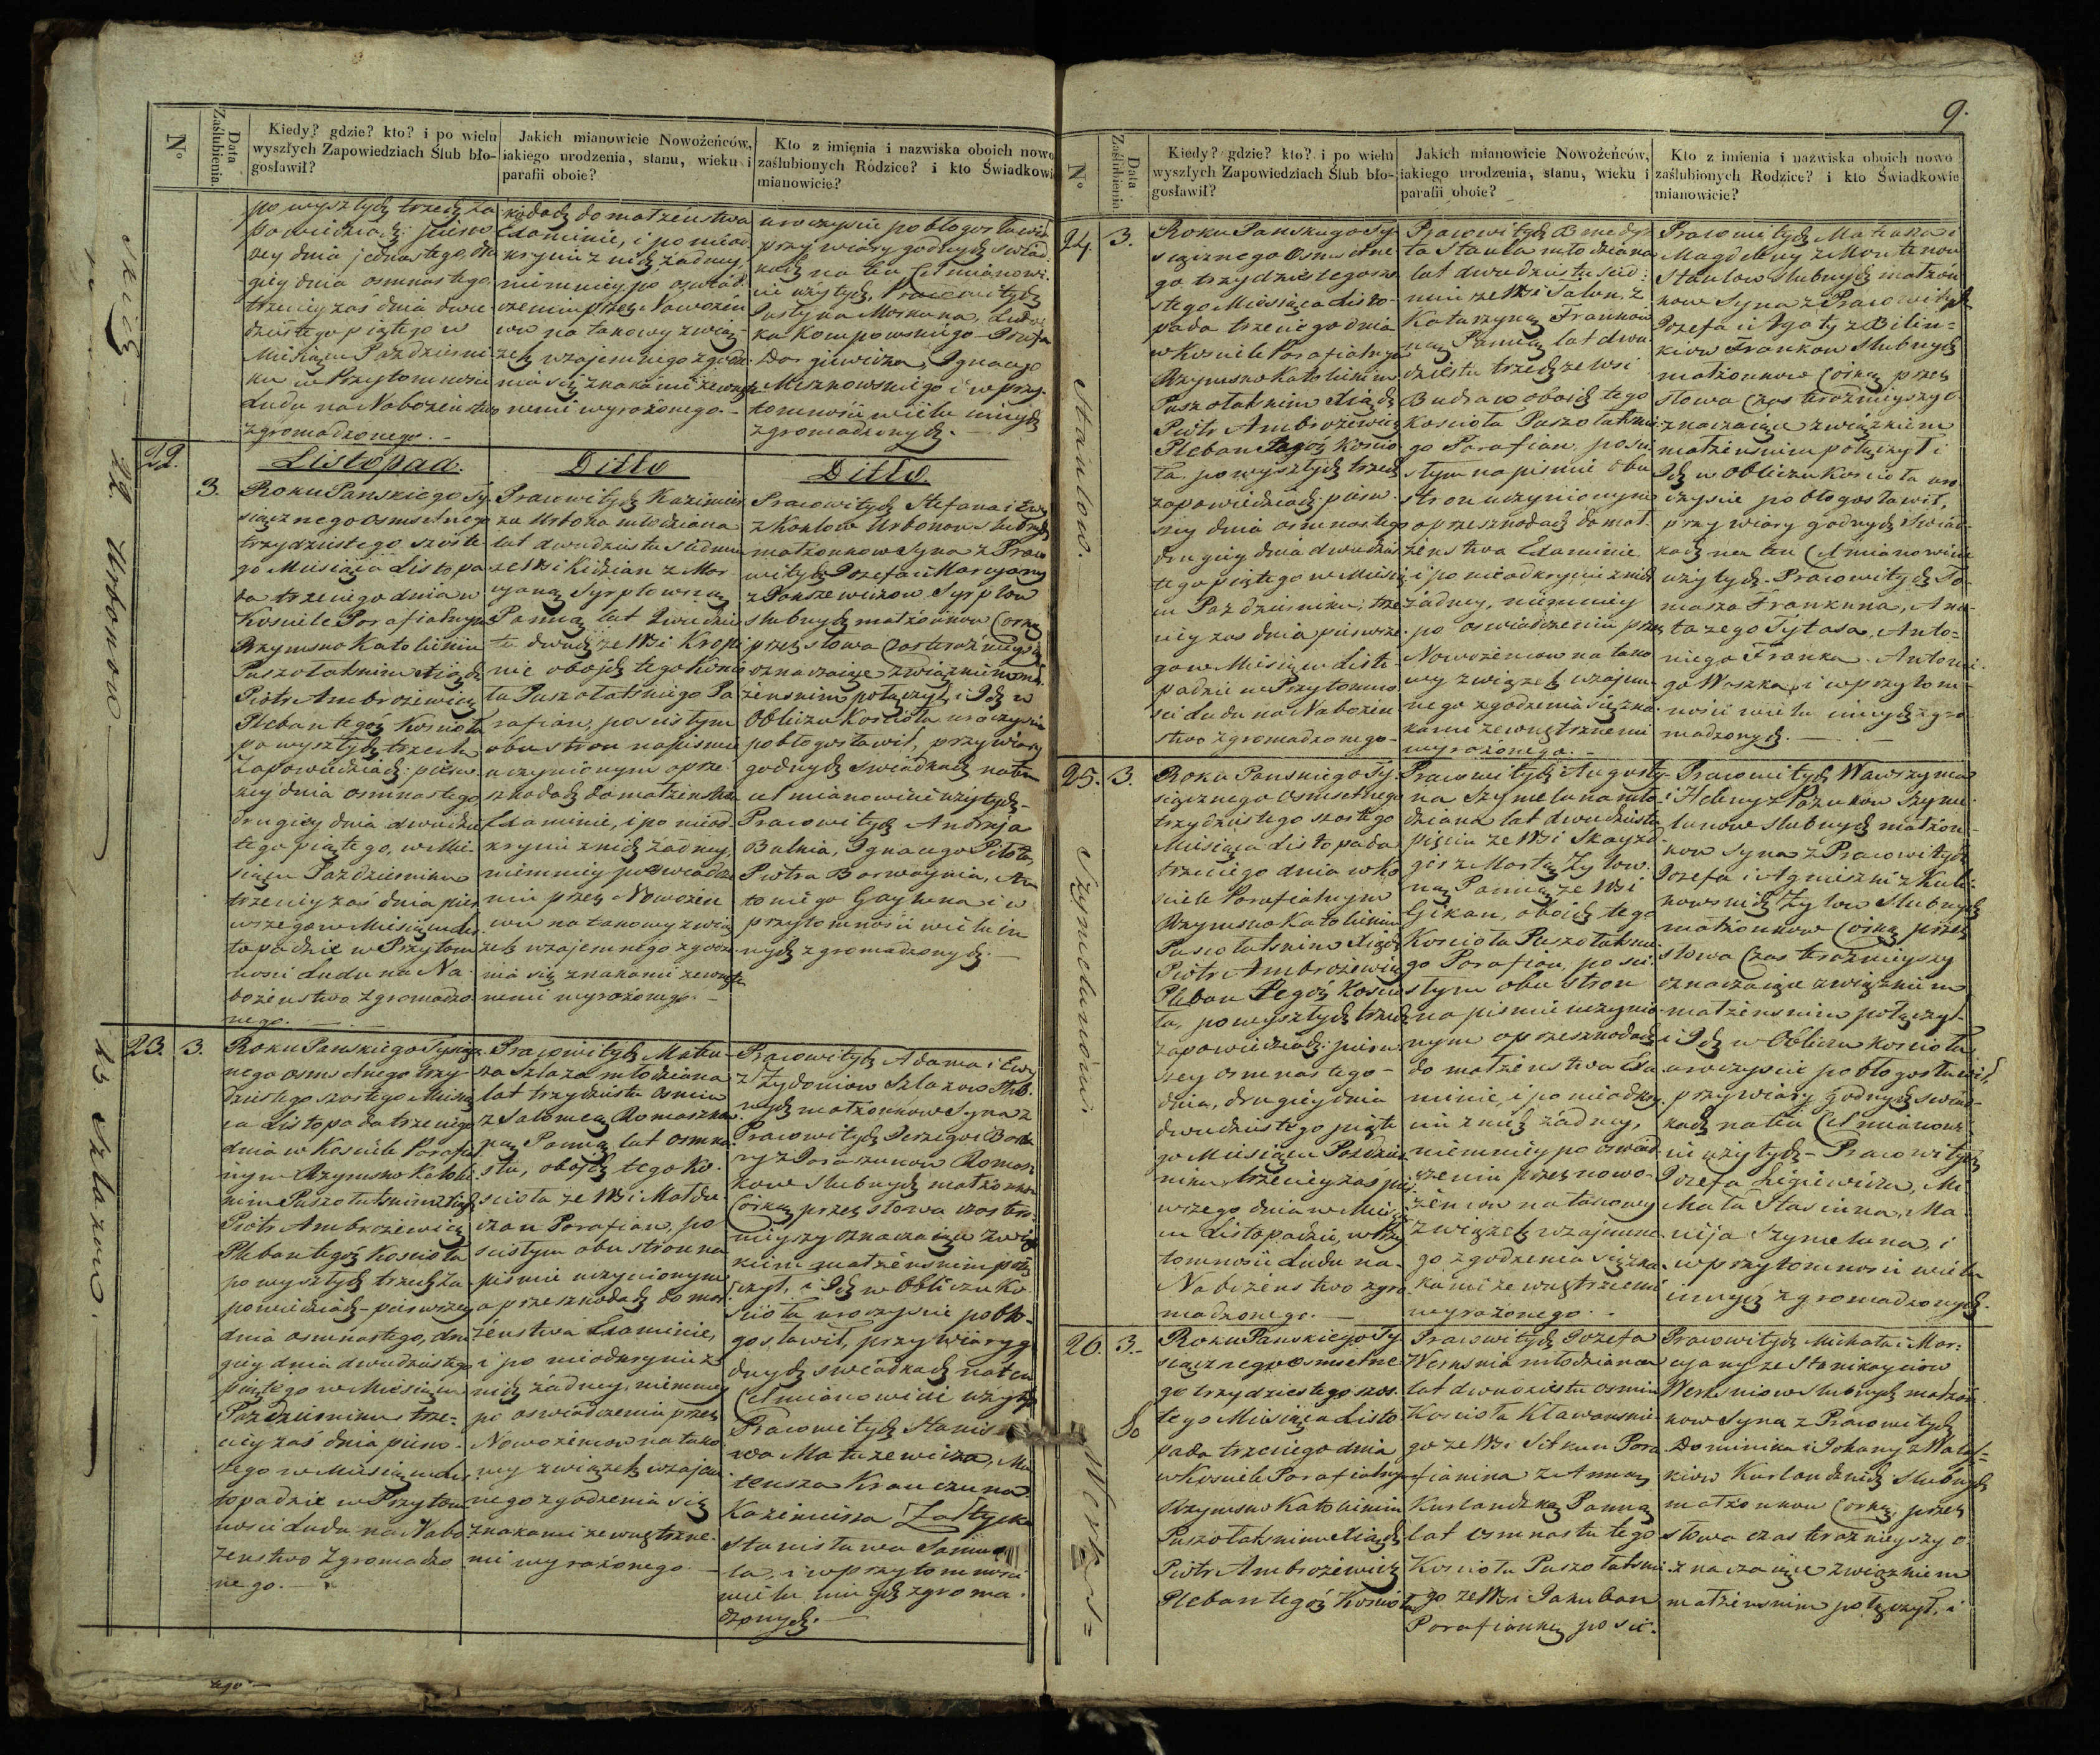 N°
Data Zaślubienia.
Kiedy? gdzie? kto? i po wielu
wyszłych Zapowiedziach Ślub bło-
gosławił?
Jakich mianowicie Nowożeńców,
jakiego urodzenia, stanu, wieku i
parafii oboie?
Kto z imięnia i nazwiska oboich nowo
zaślubionych Rodzice? i kto Świadkowie
mianowicie?
po wyszłych trzech Za
powiedziach pierw
szey dnia jednastego, dru
giey dnia osmnastego
trzeciey zaś dnia dwu
dziestego piątego w
Miesiącu Październi
ku w Przytomności
Ludu na Nabożeństwo
zgromadzonego. -
szkodach do małżeństwa
Examinie, i po nieod
kryciu z nich żadney
niemniey po oświad
czeniu przez Nowożeń
ców na takowy zwią-
zek wzajemnego zgodze
nia się znakami zewnętrz
nemi wyrażonego. -
uroczyście pobłogosławił
przy wiary godnych świad
kach na ten cel mianowi
cie użytych, Pracowitych
zgromadzonych.
22.
3.
Listopad.
Ditto
Ditto
22. Urbonow
Roku Panskiego Ty-
siącznego osmsetnego
trzydziestego szoste
go Miesiąca Listopa
da trzeciego dnia w
Kosciele Parafialnym
Rzymsko Katolickim
Puszołatskim Xiądz
Piotr Ambrożewicz
Pleban tegóż Kościoła
po wyszłych trzech
Zapowiedziach: pierw
szey dnia osmnastego
drugiey dnia dwudzies
tego piątego, w Mie-
siącu Październiku
trzeciey zaś dnia pier
wszego w Miesiącu Lis
topadzie w Przytom
nosci Ludu na Na-
bożenstwo zgromadzo
nego. -
Pracowitych Kazimier
za Urbona młodziana
lat dwudziestu siedmiu
ze Wsi Kidzian z Mar
cyanną Syrpłowną
Panną lat dwudzies
tu dwuch ze Wsi Kropi
nie obojch tego Kościo
ła Puszołatskiego Pa
rafian, po scisłym
obu stron na piśmie
uczynionym o prze
szkodach do małżenstwa
Examinie, i po nieod-
kryciu z nich żadney,
niemniey po oświadcze
niu przez Nowożeń
ców na takowy zwią
zek wzajemnego zgodze
nia się znakami zewnętrz
nemi wyrażonego. -
Pracowitych Stefana i Ewy
małżonkow Syna z Praco
witych Jozefa i Maryany
slubnych małżonkow Corkę
przez słowa czas teraźnieyszy
oznaczaiące związkiem mał
żenskim połączył, i Ich w
Obliczu Kościoła uroczyscie
pobłogosławił, przy wiary
godnych swiadkach na ten
cel mianowicie użytych -
Pracowitych Andrzeja
przytomnosci wielu in
nych zgromadzonych. -
23.
3.
23. Szlazow.
Roku Panskiego Tysiącz-
nego osmsetnego trzy-
dziestego szostego Miesią
ca Listopada trzeciego
dnia w Kosciele Parafial
nym Rzymsko Katolic
kim Puszołatskim Xiądz
Piotr Ambrożewicz
Pleban tegóż Kościoła
po wyszłych trzech Za
powiedziach - pierwszey
dnia osmnastego, dru
giey dnia dwudziestego
piątego w Miesiącu
Październiku trze-
ciey zaś dnia pierw-
szego w Miesiącu Lis
topadzie w Przytom
nosci Ludu na Nabo
żenstwo Zgromadzo
nego. -
Pracowitych Mateu
sza Szlaza młodziana
lat trzydziestu osmiu
z Salomeą Romaszkow
ną Panną lat osmna
stu, obojch tego Ko-
scioła ze Wsi
Parafian, po
scisłym obu stron na
piśmie uczynionym
o przeszkodach do mał
żenstwa Examinie,
i po nieodkryciu z
nich żadney, niemniey
po oswiadczeniu przez
Nowożencow na tako
wy związek wzajem
nego zgodzenia się
znakami zewnętrzne-
mi wyrażonego -
Pracowitych Adama i Ewy
z Zydoniow Szlazow Slub
nych małżonkow Syna z
Pracowitych Jerzego i Barba
ry z Poraszunow Romasz
kow Slubnych małżonkow
Corką przez słowa czas ter-
nieyszy oznaczaiące Zwią
zkiem małżenskim połą
czył, i Ich w Obliczu Ko
scioła uroczyscie pobło-
gosławił, przy wiary go
dnych swiadkach na ten
Cel mianowicie użytych
Pracowitych Stanis
Kazimierza
Stanisława
ła, i w przytomnosci
wielu innych zgroma-
dzonych. -
9.
N°
Data Zaślubienia.
Kiedy? gdzie? kto? i po wielu
wyszłych Zapowiedziach Ślub bło-
gosławił?
Jakich mianowicie Nowożeńców,
jakiego urodzenia, stanu, wieku i
parafii oboie?
Kto z imienia i nazwiska oboich nowo
zaślubionych Rodzice? i kto Świadkowie
mianowicie?
24
3.
Stanlow.
Roku Panskiego Ty-
siącznego Osmsetne
go trzydziestego szo
stego Miesiąca Listo-
pada trzeciego dnia
w Kosciele Parafialnym
Rzymsko Katolickim
Puszołatskim Xiądz
Piotr Ambrożewicz
Pleban tegóż Koscio-
ła, po wyszłych trzech
zapowiedziach: pierw-
szey dnia osmnastego
drugiey dnia dwudzies
tego piątego w Miesią
cu Październiku, trze
ciey zas dnia pierwsze-
go w Miesiącu Listo
padzie w Przytomno
sci Ludu na Nabożen
stwo zgromadzonego -
Pracowitych Benedyk
ta Stanla młodziana
lat dwudziestu sied-
miu ze Wsi Salun, z
Katarzyną Frankow
ną Panną lat dwu
dziestu trzech ze wsi
oboich tego
Koscioła Puszołatskie
go Parafian, po sci
słym na piśmie obu
stron uczynionym
o przeszkodach do mał-
żenstwa Examinie
i po nieodkryciu z nich
żadney, niemniey
po oswiadczeniu przez
Nowożencow na tako
wy związek wzajem
nego zgodzenia się zna-
kami zewnętrznemi
wyrażonego. -
Pracowitych Mateusza i
Magdaleny z
Stanlow slubnych małżon
kow Syna z Pracowitych
Jozefa i Agaty z Bilin=
kiow Frankow Slubnych
małżonkow Corką przez
słowa czas teraźnieyszy o
znaczaiące związkiem
małżenskim połączył i
Ich w Obliczu Koscioła uro
czyscie pobłogosławił,
przy wiary godnych Swiad-
kach na ten Cel mianowicie
użytych - Pracowitych To-
masza Frankuna, Ana-
tazego Tytasa, Anto=
niego Franka, Antonie-
go Waszka, i w przytom-
nosci wielu innych zgro
madzonych. -
25.
3.
Szymelunow.
Roku Panskiego Ty-
siącznego Osmsetnego
trzydziestego szostego
Miesiąca Listopada
trzeciego dnia w Ko
sciele Parafialnym
Rzymsko Katolickim
Puszołatskim Xiądz
Piotr Ambrożewicz
Pleban tegóż Koscio
ła, po wyszłych trzech
zapowiedziach: pierw
szey osmnastego -
dnia, drugiey dnia
dwudziestego piąte
go Miesiącu Paździer
niku, trzeciey zaś pier
wszego dnia w Miesią
cu Listopadzie, w Przy
tomnosci Ludu na-
Nabożenstwo zgro
madzonego. -
Pracowitych Augusty-
na Szymeluna mło
dziana lat dwudziestu
pięciu ze Wsi Skayz
gir z Martą Zyłow-
ną Panną ze Wsi
Gikan, oboich tego
Koscioła Puszołatskie
go Parafian, po sci
słym obu stron
na piśmie uczynio
nym o przeszkodach
do małżenstwa Exa
minie, i po nieodkry
ciu z nich żadney,
niemniey po oswiad
czeniu przez nowo-
żencow na takowy
związek wzajemne
go zgodzenia się zna
kami zewnętrznemi
wyrażonego. -
Pracowitych Wawrzyńca
i Heleny z Pazukow Szyme
lunow slubnych małżon-
kow Syna z Pracowitych
Jozefa i Agnieszki z Kuli-
nowskich Zyłow Slubnych
małżonkow Corką przez
słowa czas teraźnieyszy
oznaczaiące związkiem
małżenskim połączył
i Ich w Obliczu Koscioła
uroczyscie pobłogosławił,
przy wiary godnych swiad-
kach na ten Cel mianowi
cie użytych - Pracowitych
Jozefa Ligiewicza, Mi-
chała Stasiuna, Ma-
cieja Szymeluna, i
w przytomnosci wielu
innych zgromadzonych.
26.
3. -
Roku Panskiego Ty
siącznego osmsetne
go trzydziestego szos-
tego Miesiąca Listo
pada trzeciego dnia
w Kosciele Parafialnym
Rzymsko Katolickim
Puszołatskim Xiądz
Piotr Ambrożewicz
Pleban tegóż Koscioła
Pracowitych Jozefa
Werksnia młodziana
lat dwudziestu osmiu
Koscioła Kławanskie-
go ze Wsi Sitkun Para
fianina z Anną
Kurlandzką Panną
lat osmnastu tego
Koscioła Puszołatskie
go ze Wsi Jakuban
Parafianką po sci-
Pracowitych Michała i Mar-
cyanny ze Stanikayciow
Werksniow slubnych małżon
kow Syna z Pracowitych
Dominika i Johany z Walaj-
kiow Kurlandzkich Slubnych
małżonkow Corką, przez
słowa czas teraznieyszy o
znaczaiące związkiem
małżenskim połączył, i